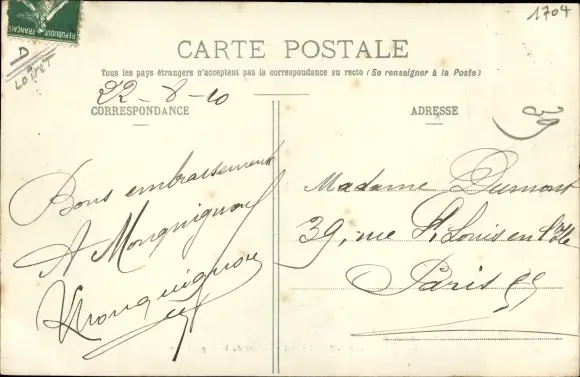 1704
RÉPUBLIQUE FRANÇAISE
D
LOIRET
CARTE POSTALE
Tous les pays étrangers n'acceptent pas la correspondance au recto (Se renseigner à la Poste)
22-8-10
CORRESPONDANCE
Bons embrassements
A Monquignon
Monquignon
ADRESSE
39
Madame Dumont
39, rue St Louis en l'Ile
Paris